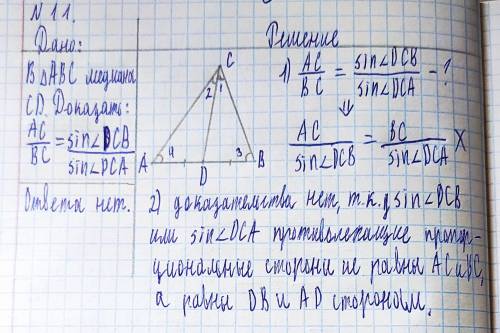 N 11.
Дано:
В △ABC медиана
CD. Доказать:
AC/BC = sin∠DCB/sin∠DCA
Ответа нет.
Решение
1) AC/BC = sin∠DCB/sin∠DCA - ?
⇓
AC/sin∠DCB = BC/sin∠DCA X
C
2 1
A 4 3 B
D
2) доказательства нет, т.к. у sin∠DCB
или sin∠DCA противолежащие пропор-
циональные стороны не равны AC и BC,
а равны DB и AD сторонам.